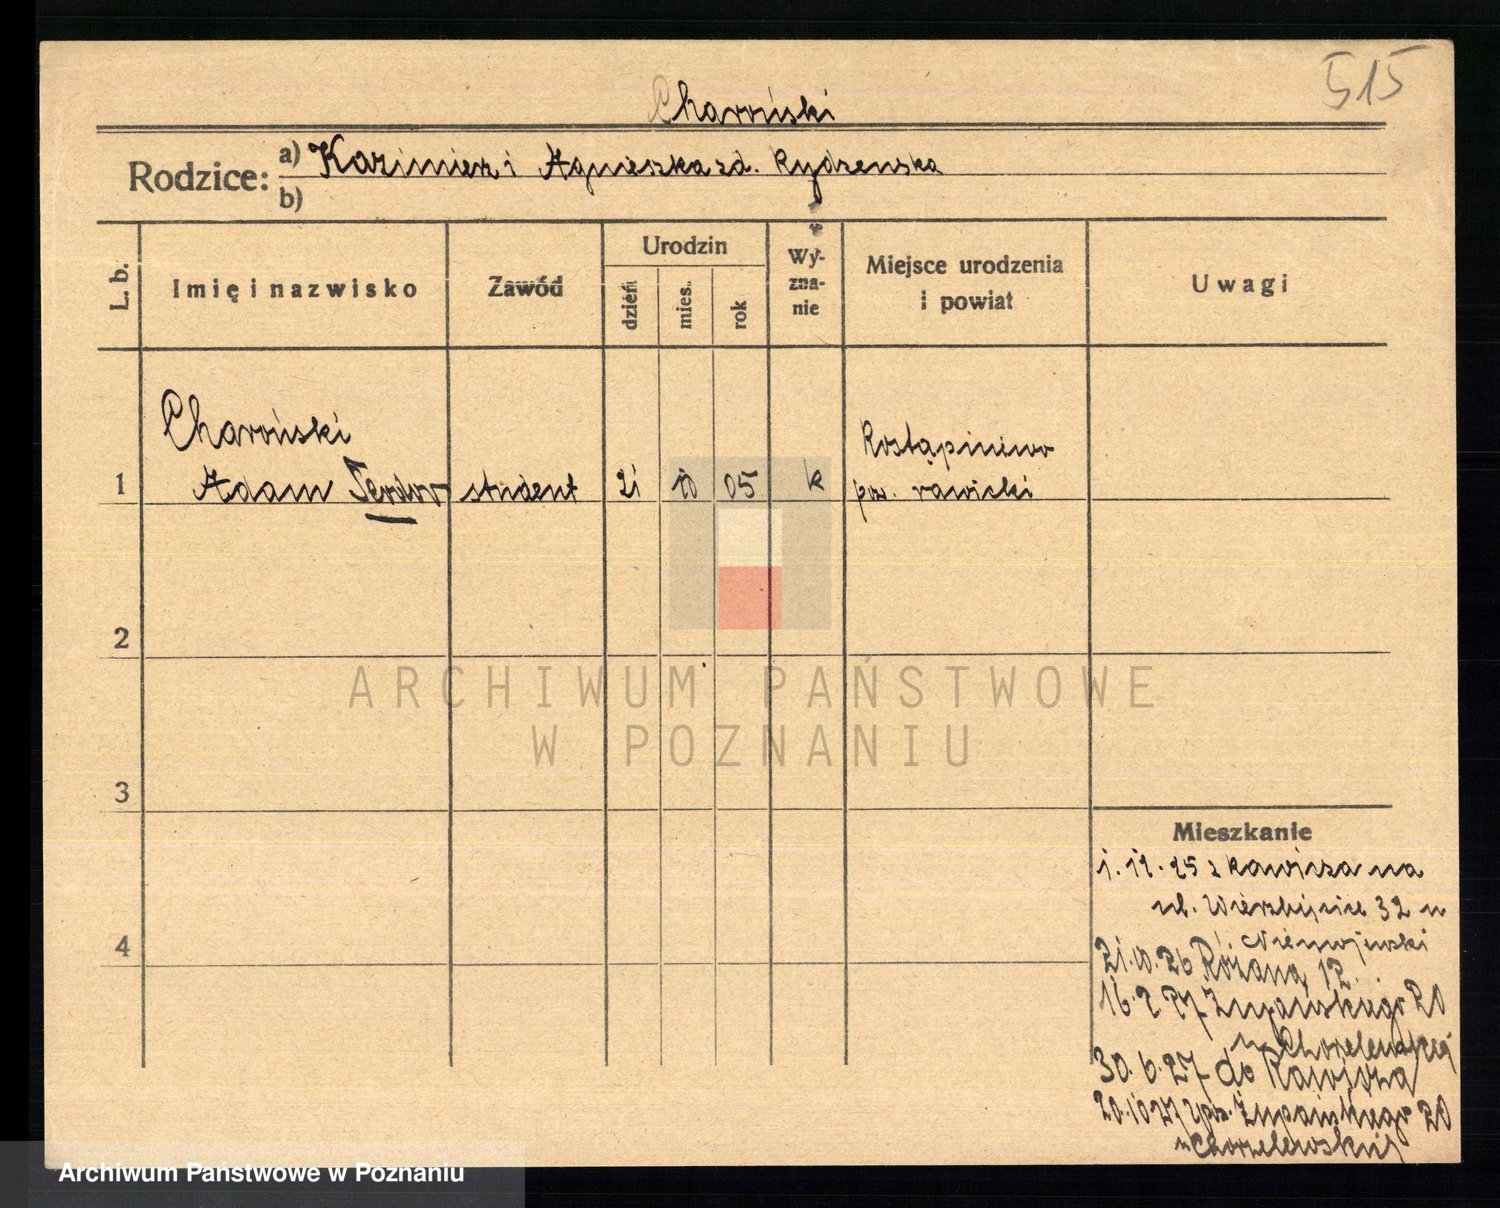 515
Charoński
Rodzice: a) Kazimierz i Agnieszka zd. Rydzewska
b)
L. b.
Imię i nazwisko
Zawód
Urodzin
dzień
mies.
rok
Wy-
zna-
nie
Miejsce urodzenia
i powiat
Uwagi
Charoński
1 Adam Teodor student 21 10 05 k
pow. rawicki
2
3
4
ARCHIWUM PAŃSTWOWE
W POZNANIU
Mieszkanie
1. 11. 25 z Rawicza na
ul. Wierzbięcice 32 u
Niemojewski
21.10.26 Różana 12
16. 2. 27 Żupańskiego 20
u
30. 6. 27 do Rawicza
20.10.27 Żupańskiego 20
u Chorzelewskiej
Archiwum Państwowe w Poznaniu